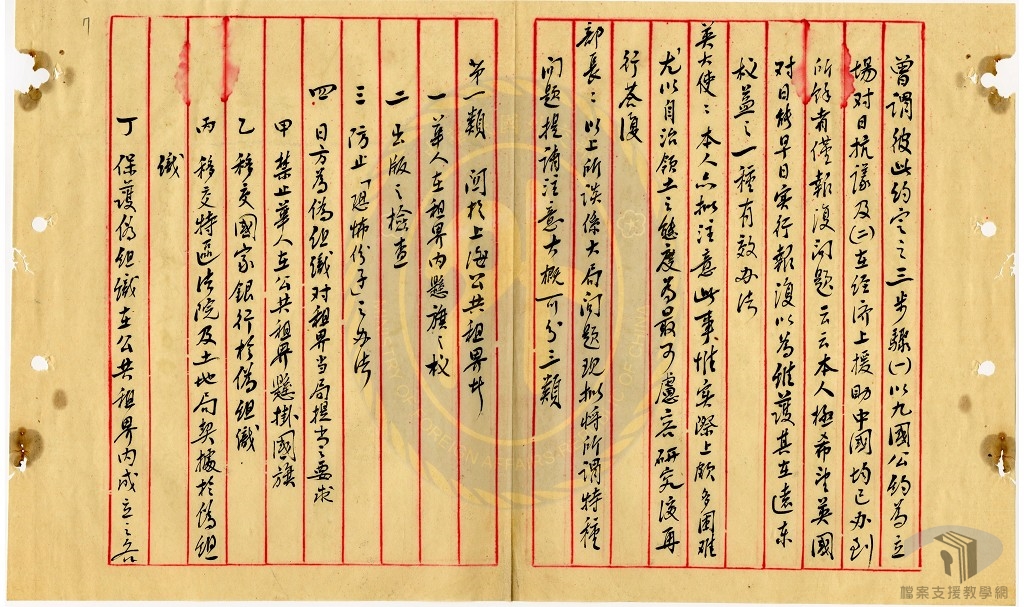 曾謂彼此約定之三步驟(一)以九國公約為立
場對日抗議及(二)在經濟上援助中國均已办到
所餘者僅報復问題云云本人極希望英國
對日能早日实行報復以為維護其在遠东
权益之一種有效办法
英大使：本人亦拟注意此事惟实際上頗多困难
尤以自治領土之態度為最可慮容研究後再
行荅復
部長：以上所谈係大局问題現拟将所谓特種
问題提请注意大概可分三類
第一類 関於上海公共租界者
一 華人在租界內懸旗之权
二 出版之檢查
三 防止「恐怖份子」之办法
四 日方為偽组織对租界当局提出之要求
甲 禁止華人在公共租界懸掛國旗
乙 移交國家銀行於偽组織
丙 移交特區法院及土地局契據於偽组
織
丁 保護偽组織在公共租界內成立之各
7
檔案支援教學網